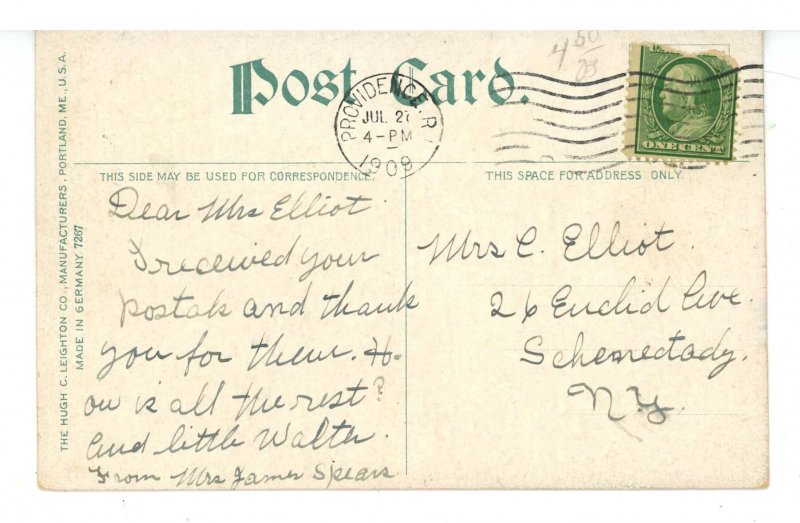 Post Card.
4 50
PROVIDENCE, R.I.
JUL 27
4-PM
1909
ONE CENT
THIS SIDE MAY BE USED FOR CORRESPONDENCE.
THIS SPACE FOR ADDRESS ONLY.
THE HUGH C. LEIGHTON CO., MANUFACTURERS, PORTLAND, ME., U.S.A.
MADE IN GERMANY 7267
Dear Mrs Elliot
I received your
postals and thank
you for them. H-
ow is all the rest?
And little Walter.
From Mrs James Spears
Mrs C. Elliot.
26 Euclid Ave.
Schenectady.
N.Y.